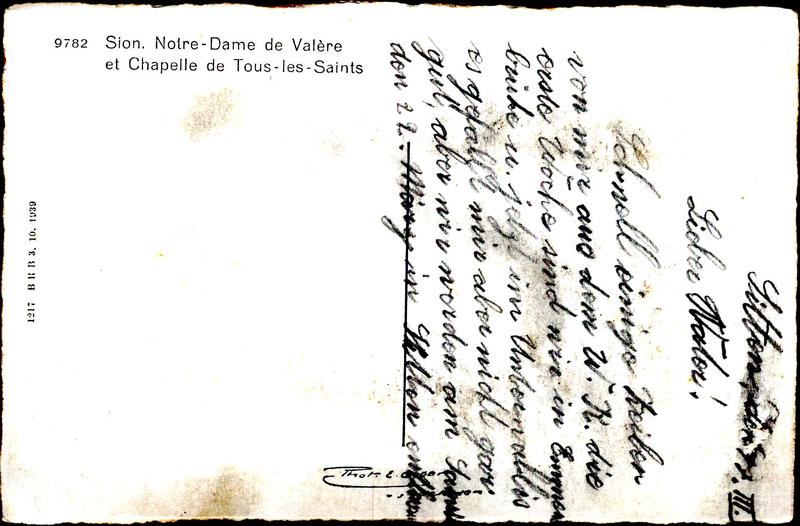 9782 Sion. Notre-Dame de Valère
et Chapelle de Tous-les-Saints
1217 B R B 3. 10. 1939
Sitten, III.
Lieber Vater!
Schnell einige Zeilen
von mir aus dem W.K. die
erste Woche sind wir in
u. jetzt im Unterwallis
es gefällt mir aber nicht ganz
gut, aber wir werden am
den 22. in Sitten
Phot. E.